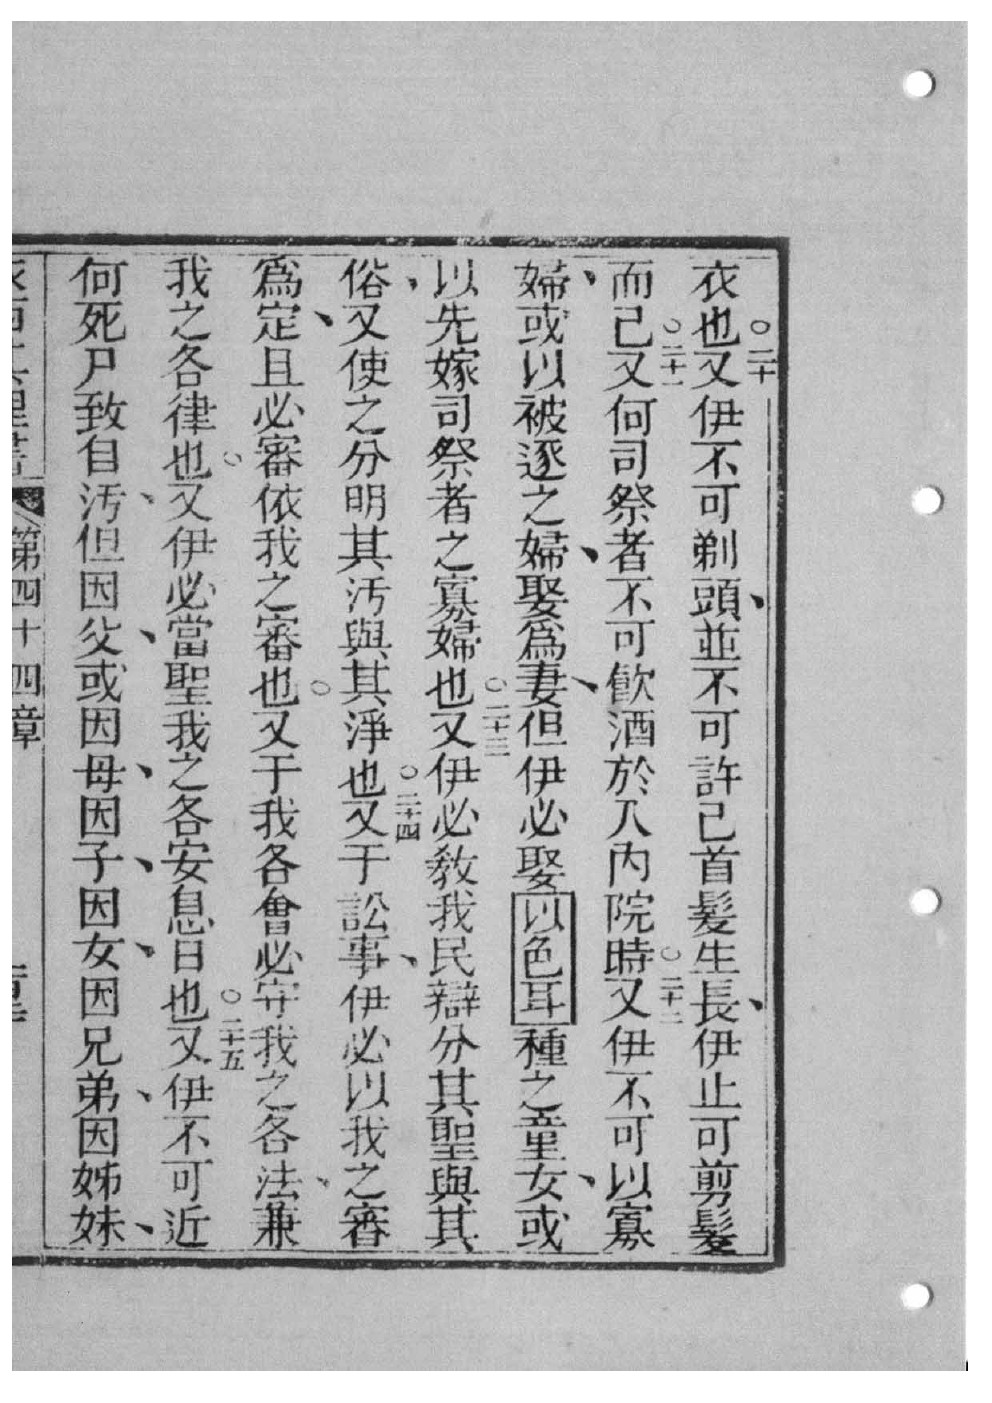 衣也○二十又伊不可剃頭、並不可許己首髮生長、伊止可剪髮
而已○二十一又何司祭者不可飲酒於入內院時○二十二又伊不可以寡
婦、或以被逐之婦、娶爲妻、但伊必娶以色耳種之童女、或
以先嫁司祭者之寡婦也○二十三又伊必敎我民辯分其聖與其
俗、又使之分明其汚與其淨也○二十四又于訟事、伊必以我之審
爲定、且必審依我之審也○又于我各會必守我之各法、兼
我之各律也○又伊必當聖我之各安息日也○二十五又伊不可近
何死尸致自汚、但因父、或因母、因子、因女、因兄弟、因姊妹、
第四十四章